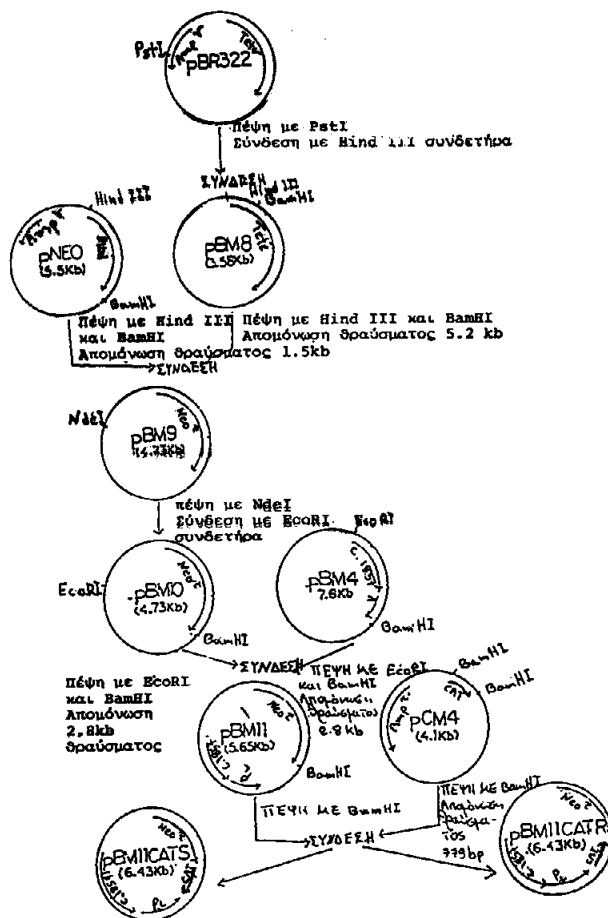 PstI
Amp r
Tetr
pBR322
Πέψη με PstI
Σύνδεση με Hind III συνδετήρα
ΣΥΝΔΕΣΗ
Hind III
BamHI
Hind III
Ampr
pNEO
(5.5Kb)
BamHI
pBM8
Tetr
Πέψη με Hind III
και BamHI
Απομόνωση θραύσματος 1.5kb
Πέψη με Hind III και BamHI
Απομόνωση θραύσματος 5.2 kb
ΣΥΝΔΕΣΗ
NdeI
Neo r
pBM9
πέψη με NdeI
Σύνδεση με EcoRI
συνδετήρα
EcoRI
Neo r
pBM10
(4.73Kb)
BamHI
EcoRI
c.1857
pBM4
7.6Kb
BamHI
ΣΥΝΔΕΣΗ
Πέψη με EcoRI
και BamHI
Απομόνωση
2,8kb
θραύσματος
ΠΕΨΗ ΜΕ EcoRI
και BamHI
Απομόνωση
θραύσματος
2.8 Kb
Neo r
pBM11
(5.65Kb)
c.1857
PL
BamHI
BamHI
CAT
BamHI
Amp r
pCM4
(4.1Kb)
ΠΕΨΗ ΜΕ BamHI
ΠΕΨΗ ΜΕ BamHI
Απομόνωση
θραύσμα-
τος
779bp
ΣΥΝΔΕΣΗ
Neo r
pBM11CATS
(6.43Kb)
c.1857
PL
Neo r
pBM11CATR
(6.43Kb)
c.1857